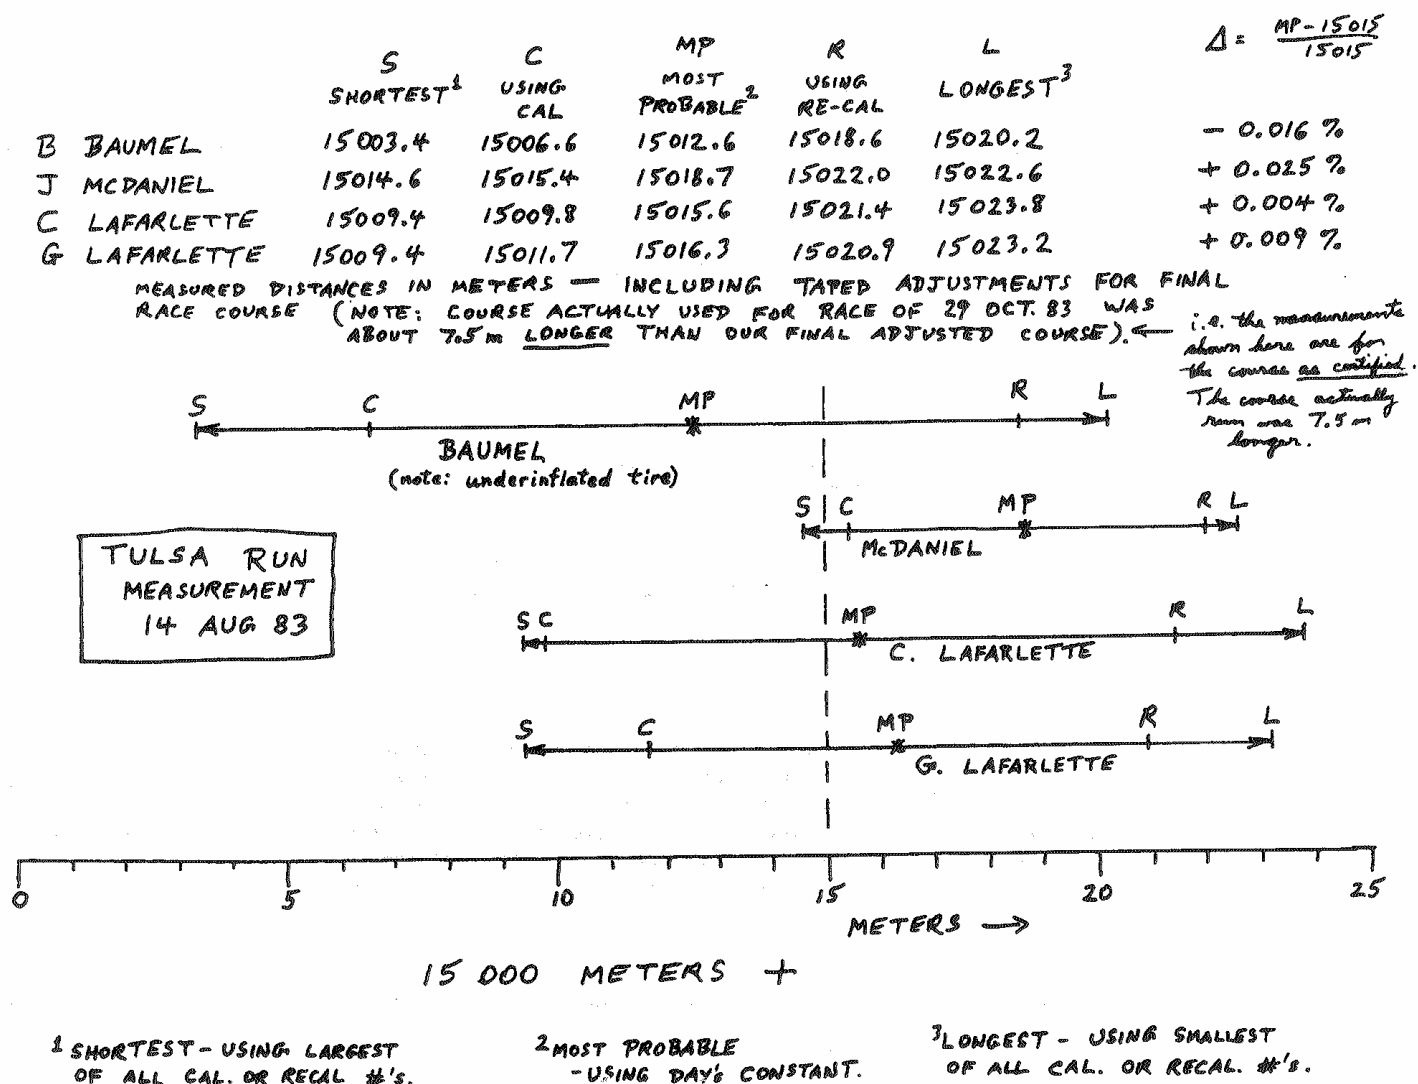 S C MP R L Δ = MP - 15015 / 15015
SHORTEST¹ USING CAL MOST PROBABLE² USING RE-CAL LONGEST³
B BAUMEL 15003.4 15006.6 15012.6 15018.6 15020.2 - 0.016 %
J MCDANIEL 15014.6 15015.4 15018.7 15022.0 15022.6 + 0.025 %
C LAFARLETTE 15009.4 15009.8 15015.6 15021.4 15023.8 + 0.004 %
G LAFARLETTE 15009.4 15011.7 15016.3 15020.9 15023.2 + 0.009 %
MEASURED DISTANCES IN METERS — INCLUDING TAPED ADJUSTMENTS FOR FINAL
RACE COURSE (NOTE: COURSE ACTUALLY USED FOR RACE OF 29 OCT. 83 WAS
ABOUT 7.5 m LONGER THAN OUR FINAL ADJUSTED COURSE). ←
i.e. the measurements
shown here are for
the course as certified.
The course actually
run was 7.5 m
longer.
S C MP R L
BAUMEL
(note: underinflated tire)
S C MP R L
McDANIEL
TULSA RUN
MEASUREMENT
14 AUG 83
S C MP R L
C. LAFARLETTE
S C MP R L
G. LAFARLETTE
0 5 10 15 20 25
METERS →
15 000 METERS +
¹ SHORTEST - USING LARGEST
OF ALL CAL. OR RECAL #'s.
² MOST PROBABLE
- USING DAY'S CONSTANT.
³ LONGEST - USING SMALLEST
OF ALL CAL. OR RECAL. #'s.